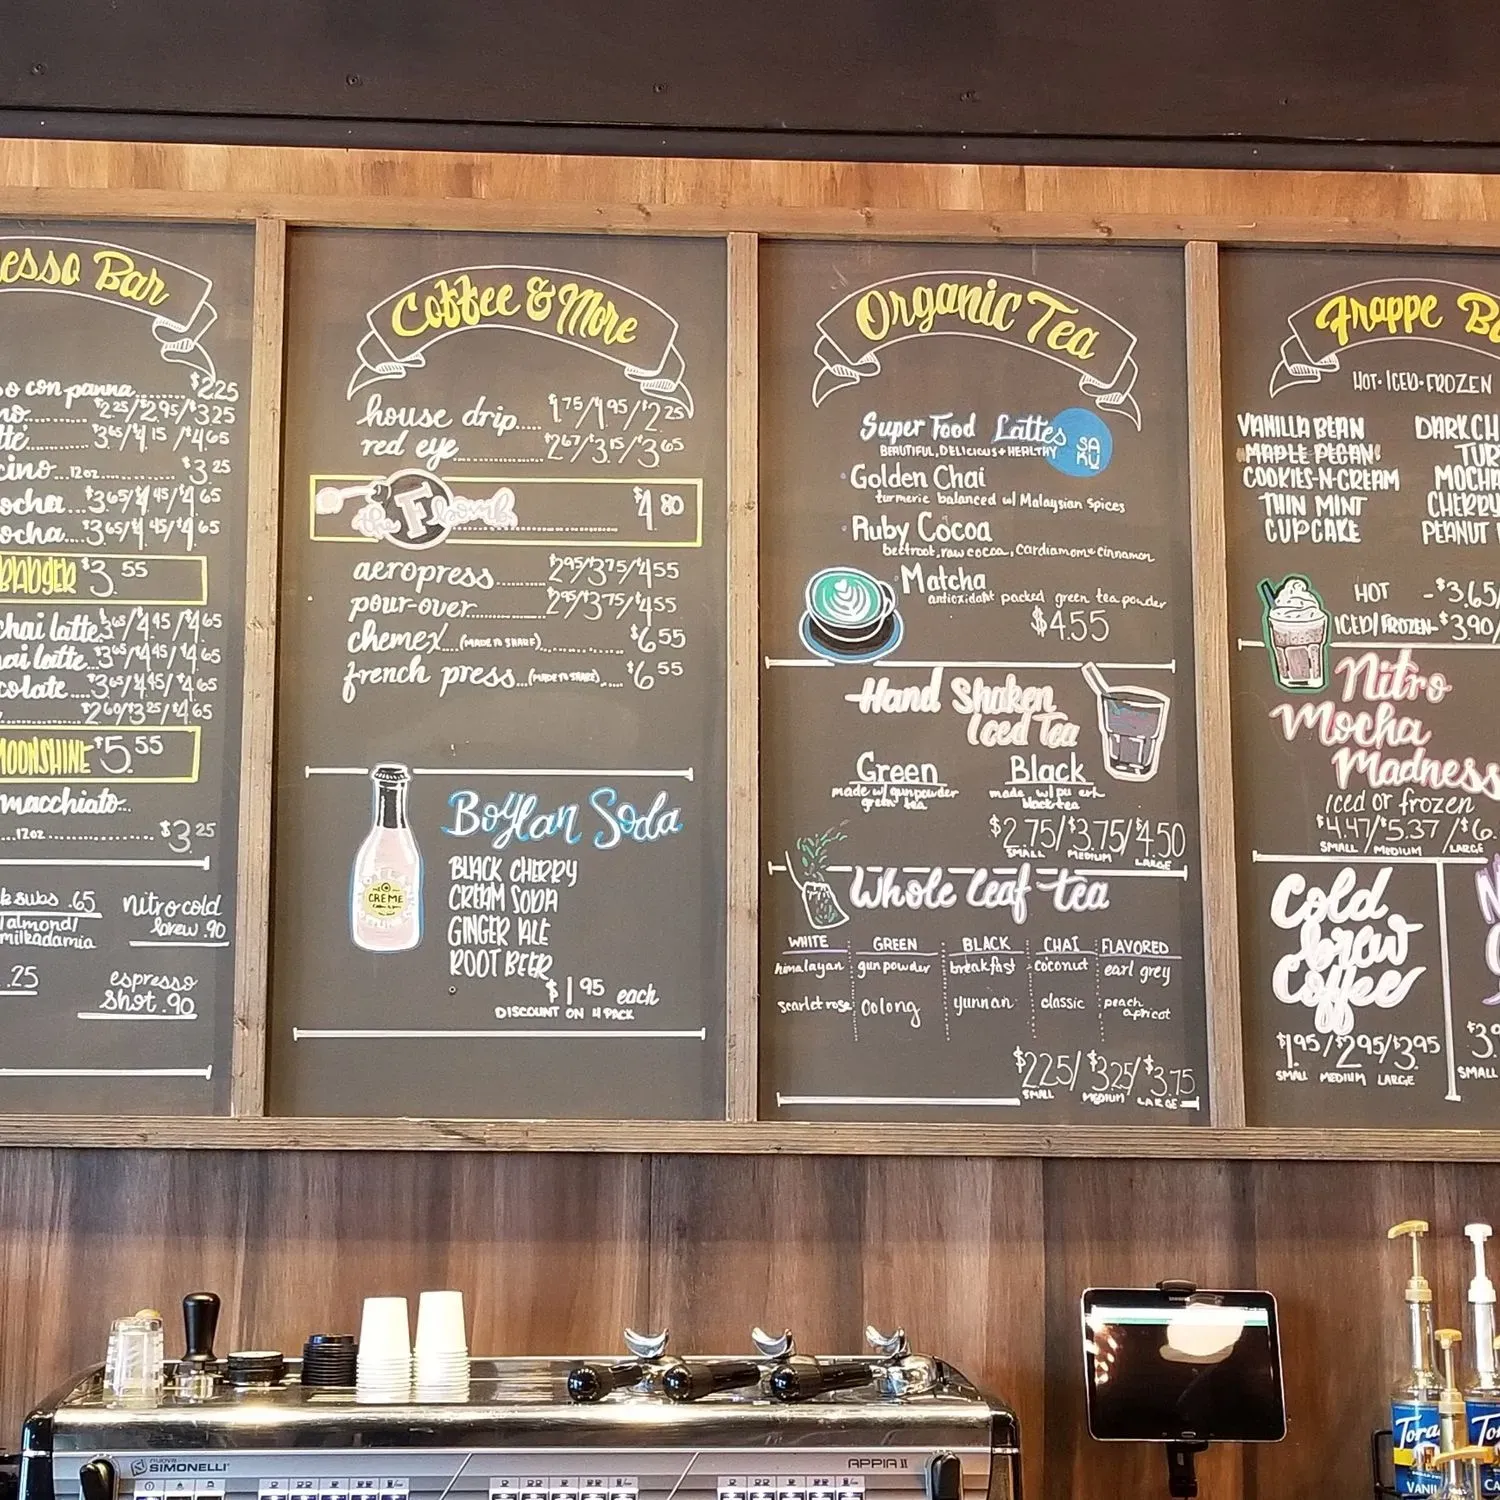 esso Bar
so con panna........ $2.25
no........ $2.25/$2.95/$3.25
tte ........ $3.65/$4.15/$4.65
cino..12oz........ $3.25
ocha...$3.65/$4.45/$4.65
ocha....$3.65/$4.45/$4.65
BADGER $3.55
chai latte $3.65/$4.45/$4.65
ai latte..$3.65/$4.45/$4.65
colate....$3.65/$4.45/$4.65
$2.60/$3.25/$4.65
MOONSHINE $5.55
macchiato..
...12oz.................. $3.25
k subs .65
/almond/
milkadamia
nitro cold
brew .90
.25
espresso
shot .90
Coffee & More
house drip..... $1.75/$1.95/$2.25
red eye............ $2.67/$3.15/$3.65
the F bomb ............ $4.80
aeropress........ $2.95/$3.75/$4.55
pour-over........ $2.95/$3.75/$4.55
chemex...(MADE TO SHARE)............ $6.55
french press...(MADE TO SHARE)..... $6.55
Boylan Soda
CREME
BLACK CHERRY
CREAM SODA
GINGER ALE
ROOT BEER
$1.95 each
DISCOUNT ON 4 PACK
Organic Tea
Super Food Lattes
SA
KU
BEAUTIFUL, DELICIOUS + HEALTHY
Golden Chai
turmeric balanced w/ Malaysian Spices
Ruby Cocoa
beetroot, raw cocoa, cardiamom & cinnamon
Matcha
antioxidant packed green tea powder
$4.55
Hand Shaken
Iced Tea
Green
made w/ gunpowder
green tea
Black
made w/ pu erh
black tea
$2.75/$3.75/$4.50
SMALL MEDIUM LARGE
Whole leaf tea
WHITE GREEN BLACK CHAI FLAVORED
himalayan gunpowder breakfast coconut earl grey
scarlet rose oolong yunnan classic peach
apricot
$2.25/$3.25/$3.75
SMALL MEDIUM LARGE
Frappe Ba
HOT · ICED · FROZEN
VANILLA BEAN
MAPLE PECAN
COOKIES-N-CREAM
THIN MINT
CUPCAKE
DARK CH
TUR
MOCHA
CHERRY
PEANUT
HOT -$3.65/
ICED/FROZEN-$3.90/
Nitro
Mocha
Madness
iced or frozen
$4.47/$5.37/$6.
SMALL MEDIUM LARGE
Cold
brew
Coffee
$1.95/$2.95/$3.95
SMALL MEDIUM LARGE
$3.9
SMALL
nuova
SIMONELLI
APPIA II
Tora
VANIL
To
CA